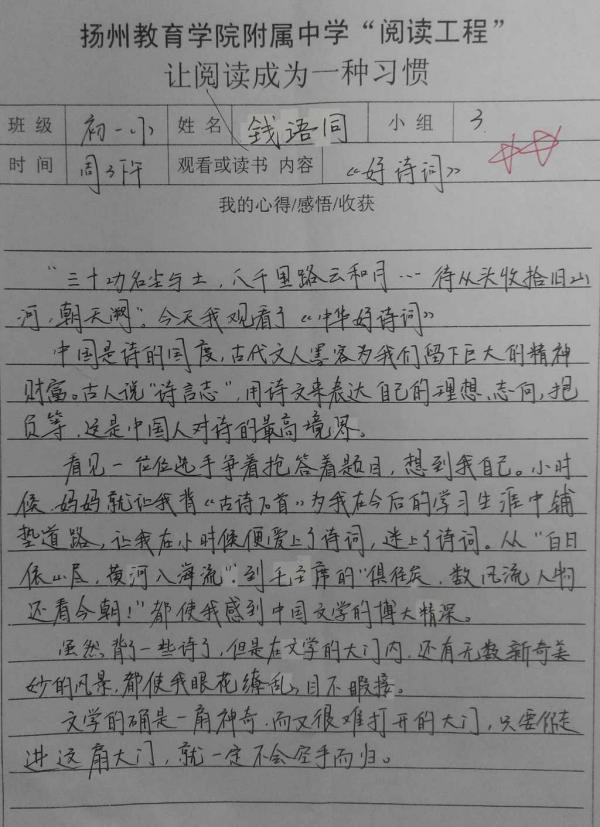 扬州教育学院附属中学“阅读工程”
让阅读成为一种习惯
班级 初一小 姓名 钱语同 小组 3.
时间 周3下午 观看或读书 内容 《好诗词》
我的心得/感悟/收获
“三十功名尘与土，八千里路云和月…待从头收拾旧山
河，朝天阙”。今天我观看了《中华好诗词》
中国是诗的国度，古代文人墨客为我们留下巨大的精神
财富。古人说“诗言志”，用诗文来表达自己的理想、志向，抱
负等，这是中国人对诗的最高境界。
看见一位位选手争着抢答着题目，想到我自己。小时
候，妈妈就让我背《古诗70首》为我在今后的学习生涯中铺
垫道路，让我在小时候便爱上了诗词，迷上了诗词。从“白日
依山尽，黄河入海流”到毛主席的“俱往矣，数风流人物
还看今朝！”都使我感到中国文学的博大精深。
虽然背了一些诗了，但是在文学的大门内，还有无数新奇美
妙的风景，都使我眼花缭乱，目不暇接。
文学的确是一扇神奇，而又很难打开的大门，只要你走
进这扇大门，就一定不会空手而归。